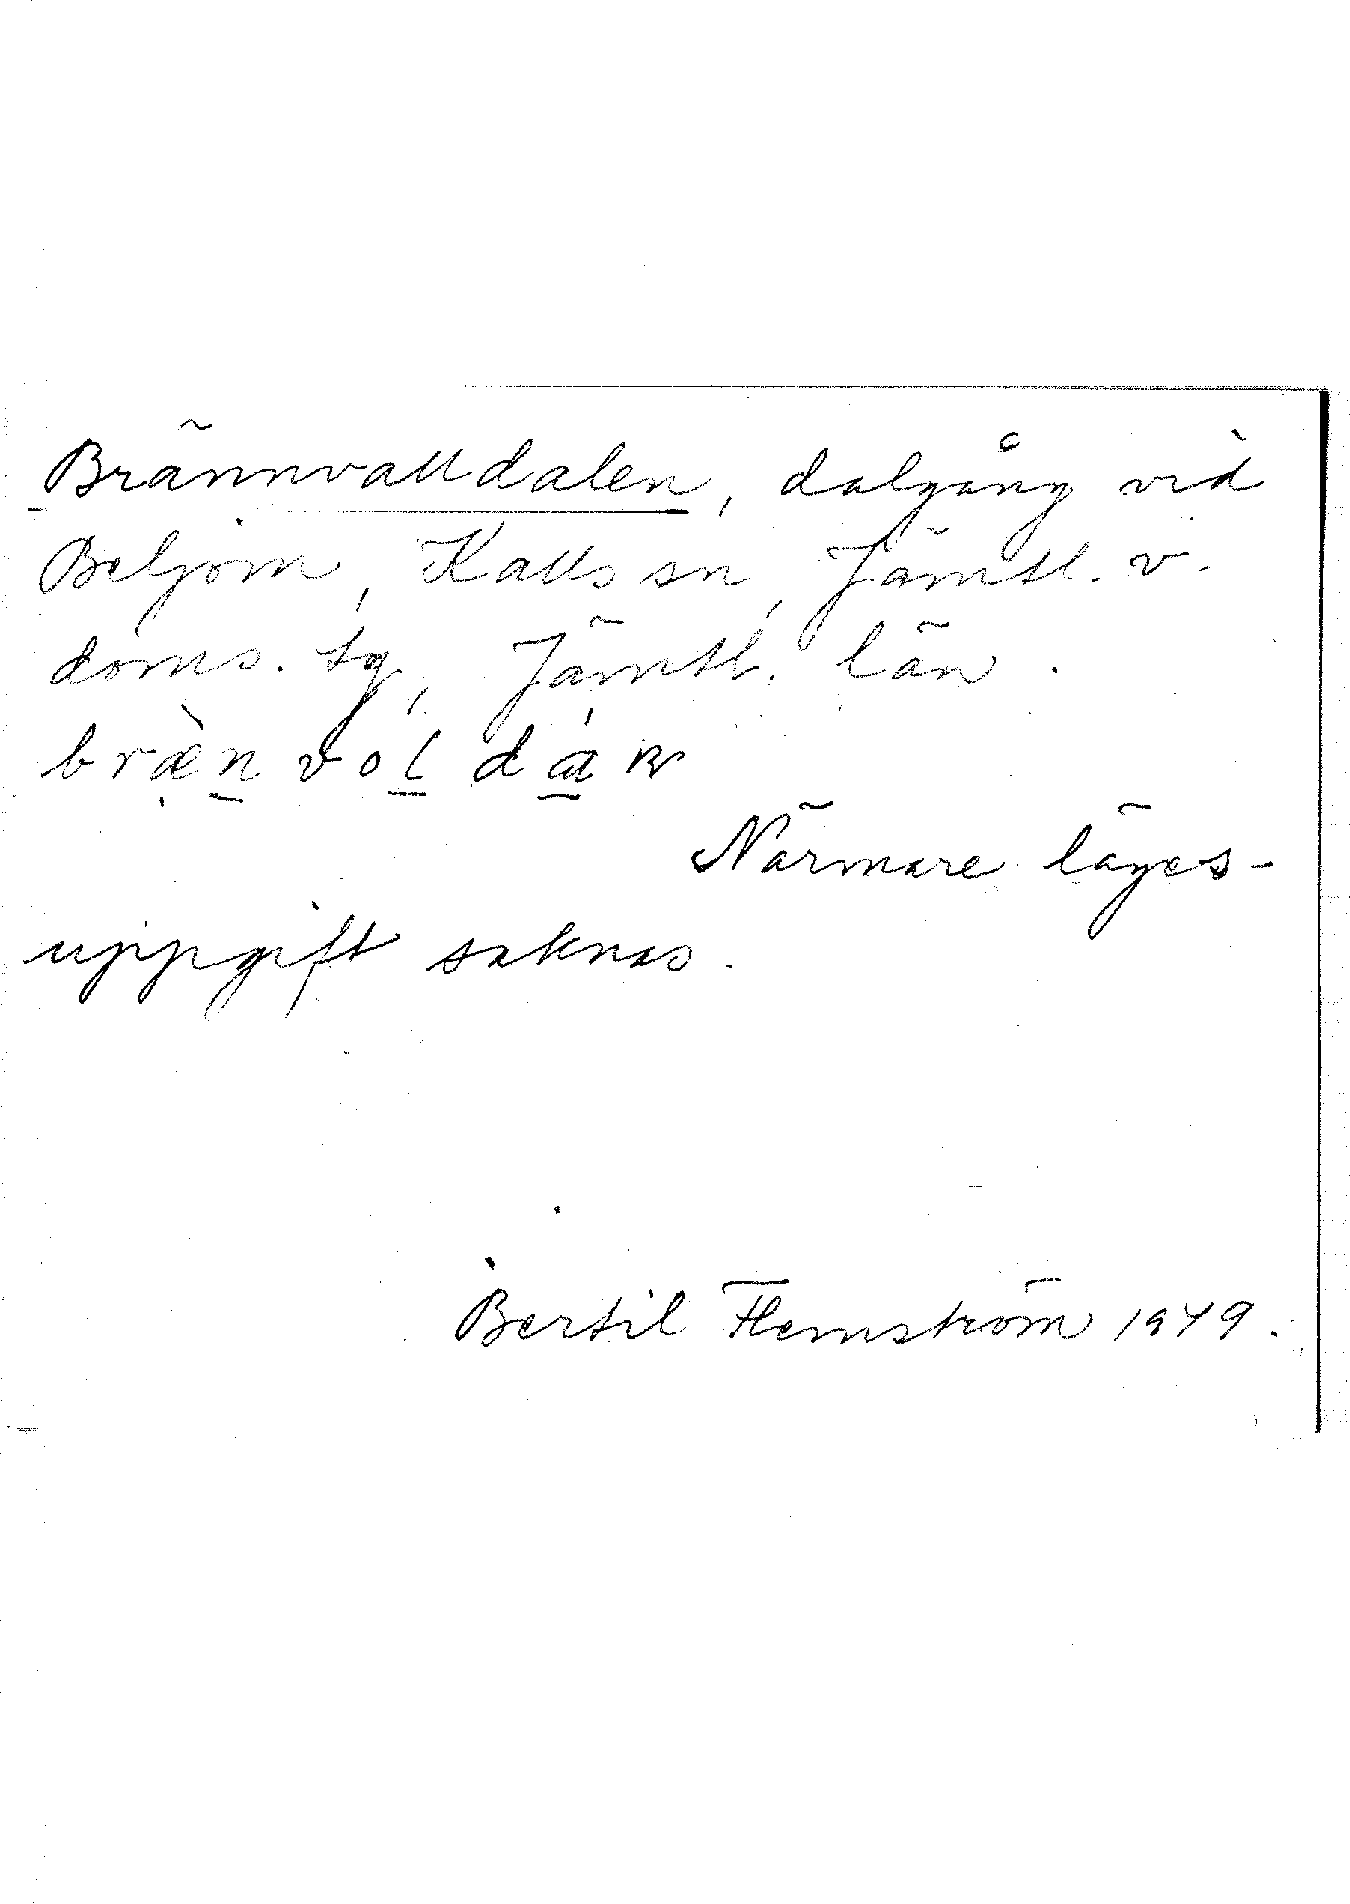 Brännvalldalen, dalgång vid
Beljom, Kalls sn, Jämtl. v.
doms. tg, Jämtl. län.
bræ̀nvoldɑ́n
Närmare läges-
uppgift saknas.
Bertil Flemström 1949.